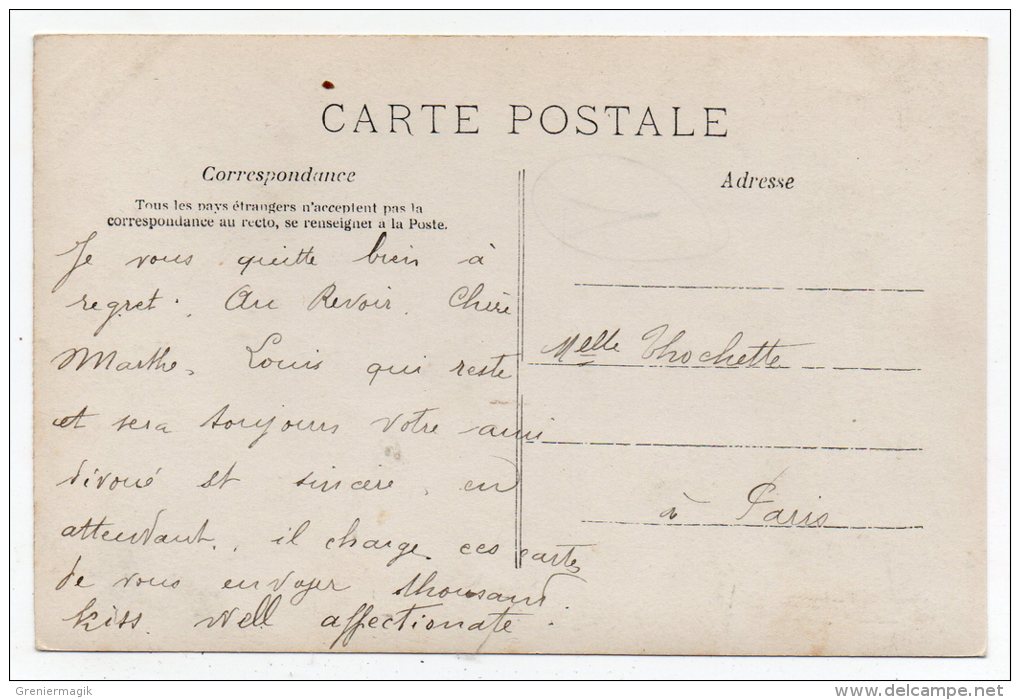 CARTE POSTALE
Correspondance
Tous les pays étrangers n'acceptent pas la
correspondance au recto, se renseigner à la Poste.
Je vous quitte bien à
regret. Au Revoir. Chère
Marthe. Louis qui reste
et sera toujours votre ami
dévoué et sincère, en
attendant, il charge ces cartes
de vous envoyer thousand
kiss well affectionate.
Adresse
Melle Thochette
à Paris
Greniermagik
delcampe.net